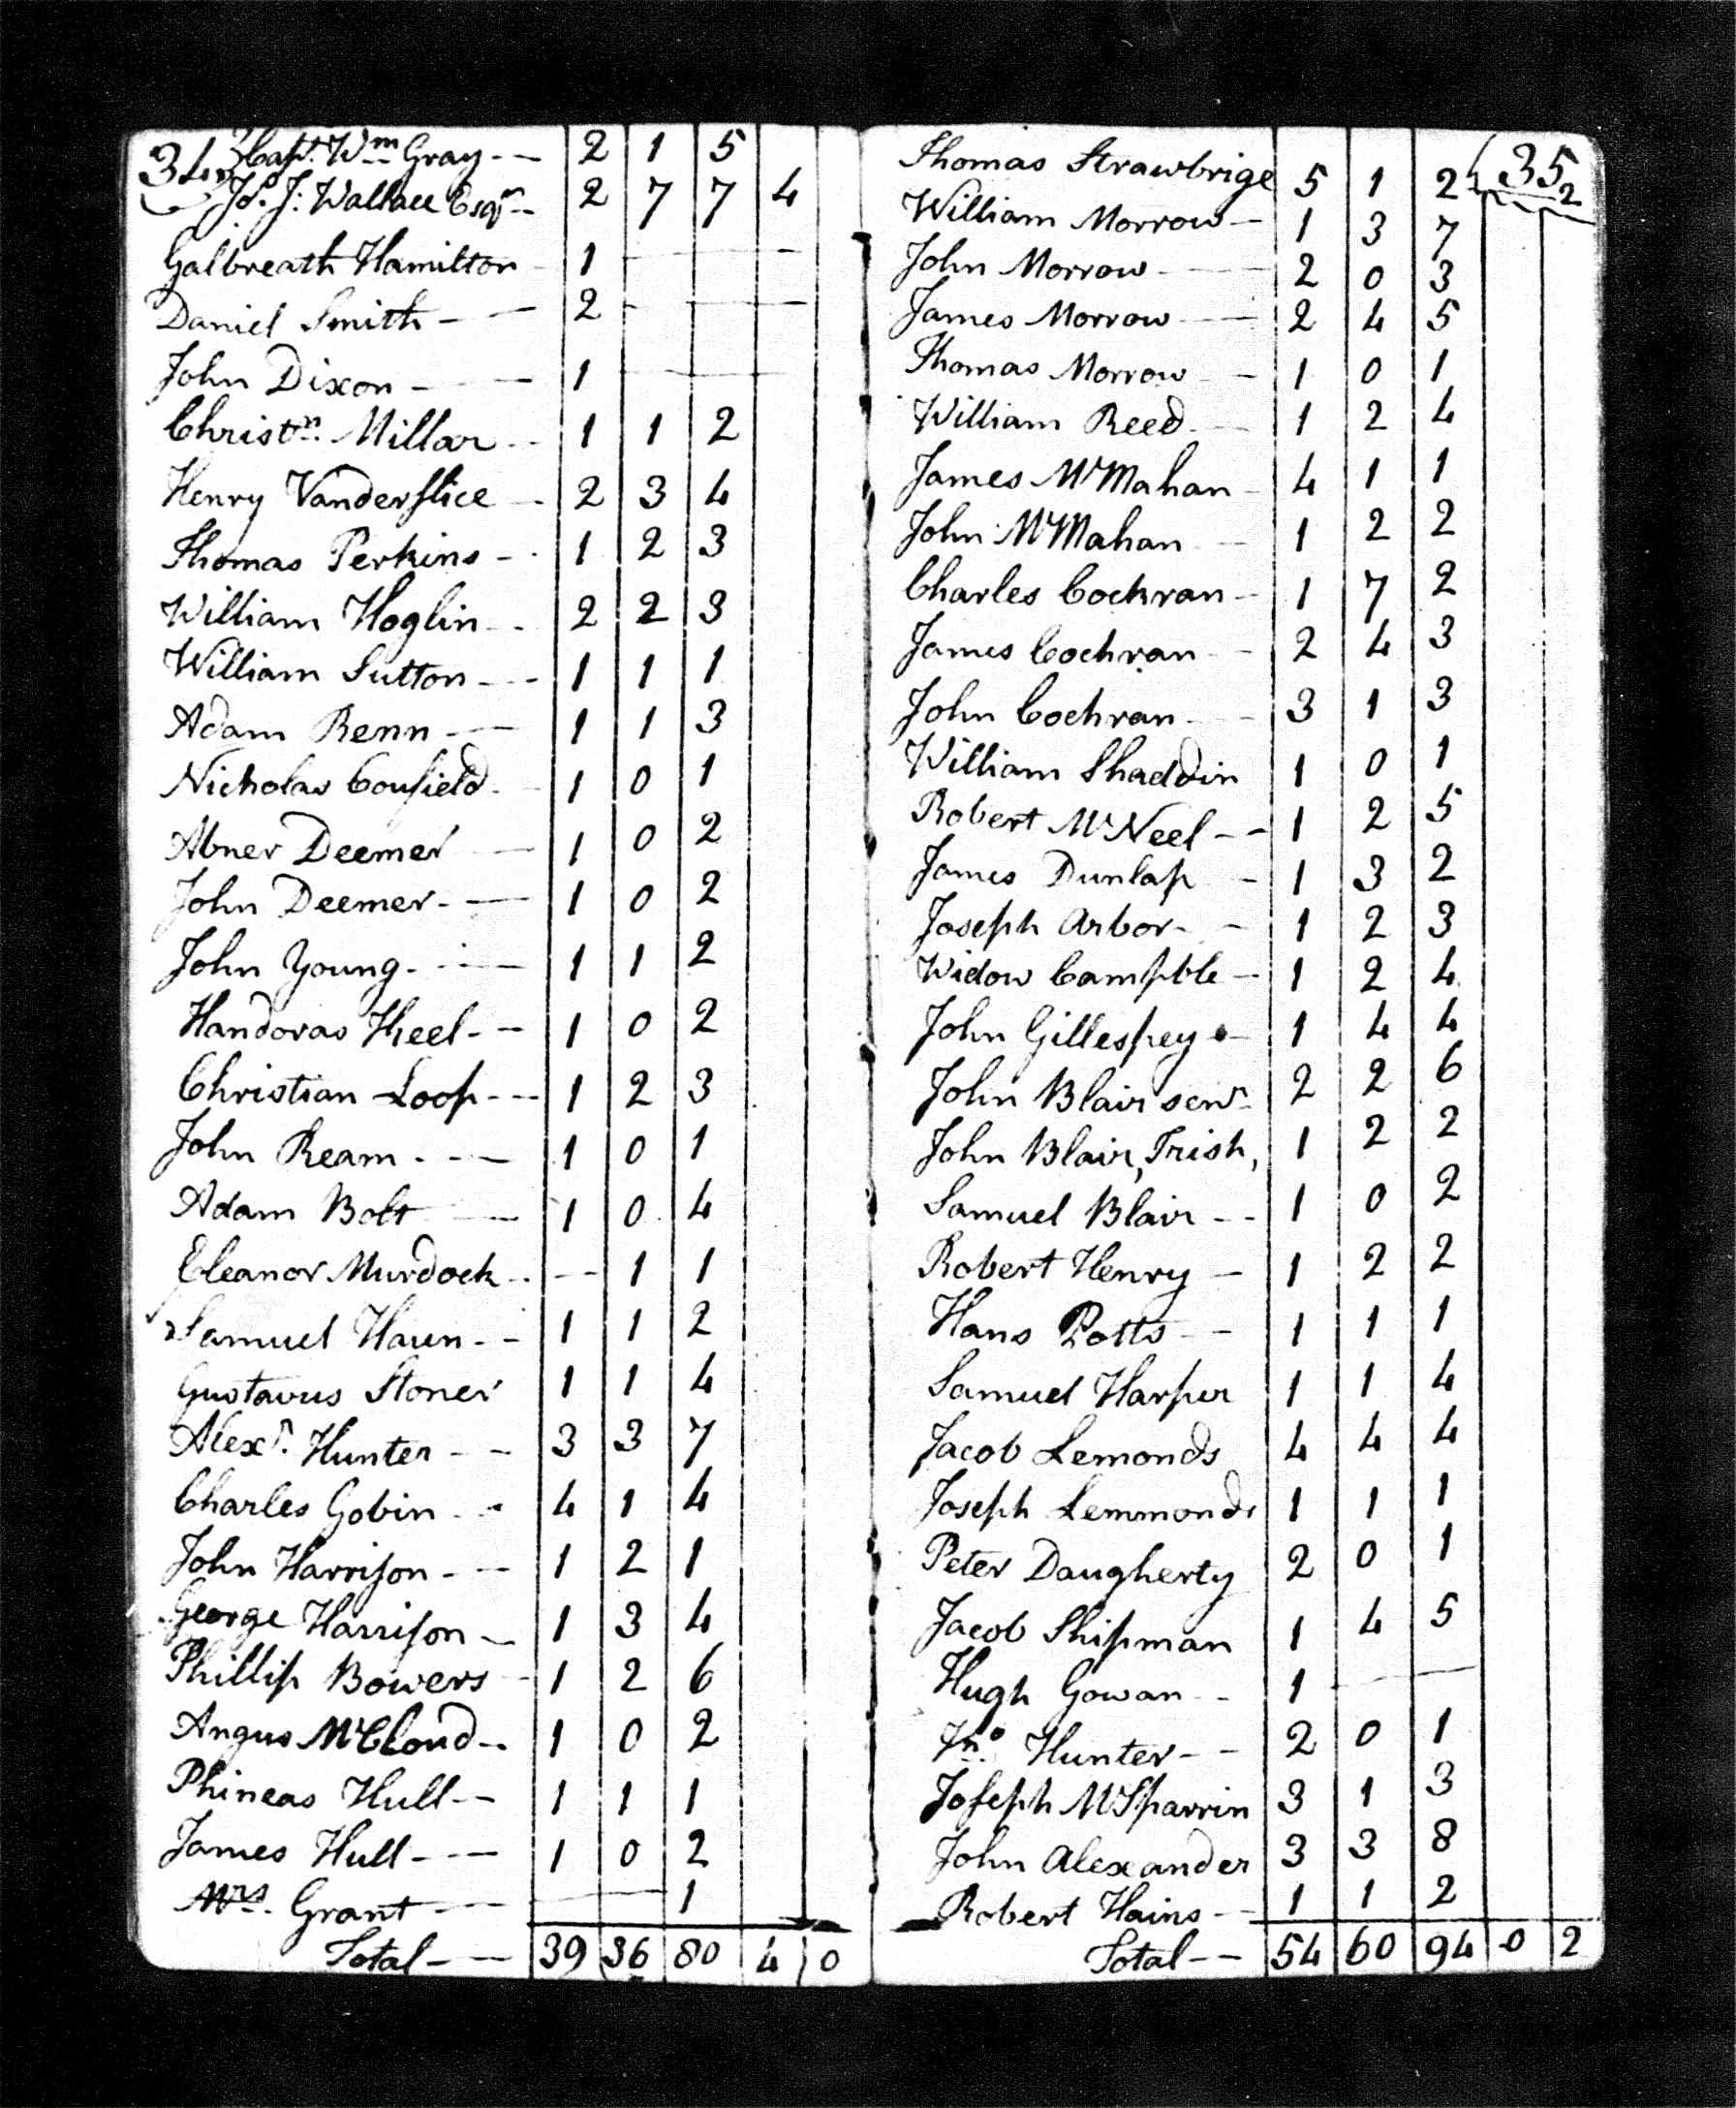 34 Capt. Wm Gray 2 1 5
Js. J: Wallace Esqr 2 7 7 4
Galbreath Hamilton 1
Daniel Smith 2
John Dixon 1
Christn. Millar 1 1 2
Henry Vanderslice 2 3 4
Thomas Perkins 1 2 3
William Hoglin 2 2 3
William Sutton 1 1 1
Adam Renn 1 1 3
Nicholas Coufield 1 0 1
Abner Deemer 1 0 2
John Deemer 1 0 2
John Young 1 1 2
Handoras Heel 1 0 2
Christian Loop 1 2 3
John Ream 1 0 1
Adam Bolt 1 0 4
Eleanor Murdock 1 1
Samuel Haun 1 1 2
Gustavus Stoner 1 1 4
Alexr. Hunter 3 3 7
Charles Gobin 4 1 4
John Harrison 1 2 1
George Harrison 1 3 4
Phillip Bowers 1 2 6
Angus McCloud 1 0 2
Phineas Hull 1 1 1
James Hull 1 0 2
Mrs. Grant 1
Total 39 36 80 4 0
35
Thomas Strawbrige 5 1 2 2
William Morrow 1 3 7
John Morrow 2 0 3
James Morrow 2 4 5
Thomas Morrow 1 0 1
William Reed 1 2 4
James McMahan 4 1 1
John McMahan 1 2 2
Charles Cochran 1 7 2
James Cochran 2 4 3
John Cochran 3 1 3
William Shaddin 1 0 1
Robert McNeel 1 2 5
James Dunlap 1 3 2
Joseph Arbor 1 2 3
Widow Campble 1 2 4
John Gillespey 1 4 4
John Blair senr 2 2 6
John Blair, Irish, 1 2 2
Samuel Blair 1 0 2
Robert Henry 1 2 2
Hans Potts 1 1 1
Samuel Harper 1 1 4
Jacob Lemonds 4 4 4
Joseph Lemmonds 1 1 1
Peter Daugherty 2 0 1
Jacob Shipman 1 4 5
Hugh Gowan 1
Jno. Hunter 2 0 1
Joseph McSparrin 3 1 3
John Alexander 3 3 8
Robert Hains 1 1 2
Total 54 60 94 0 2